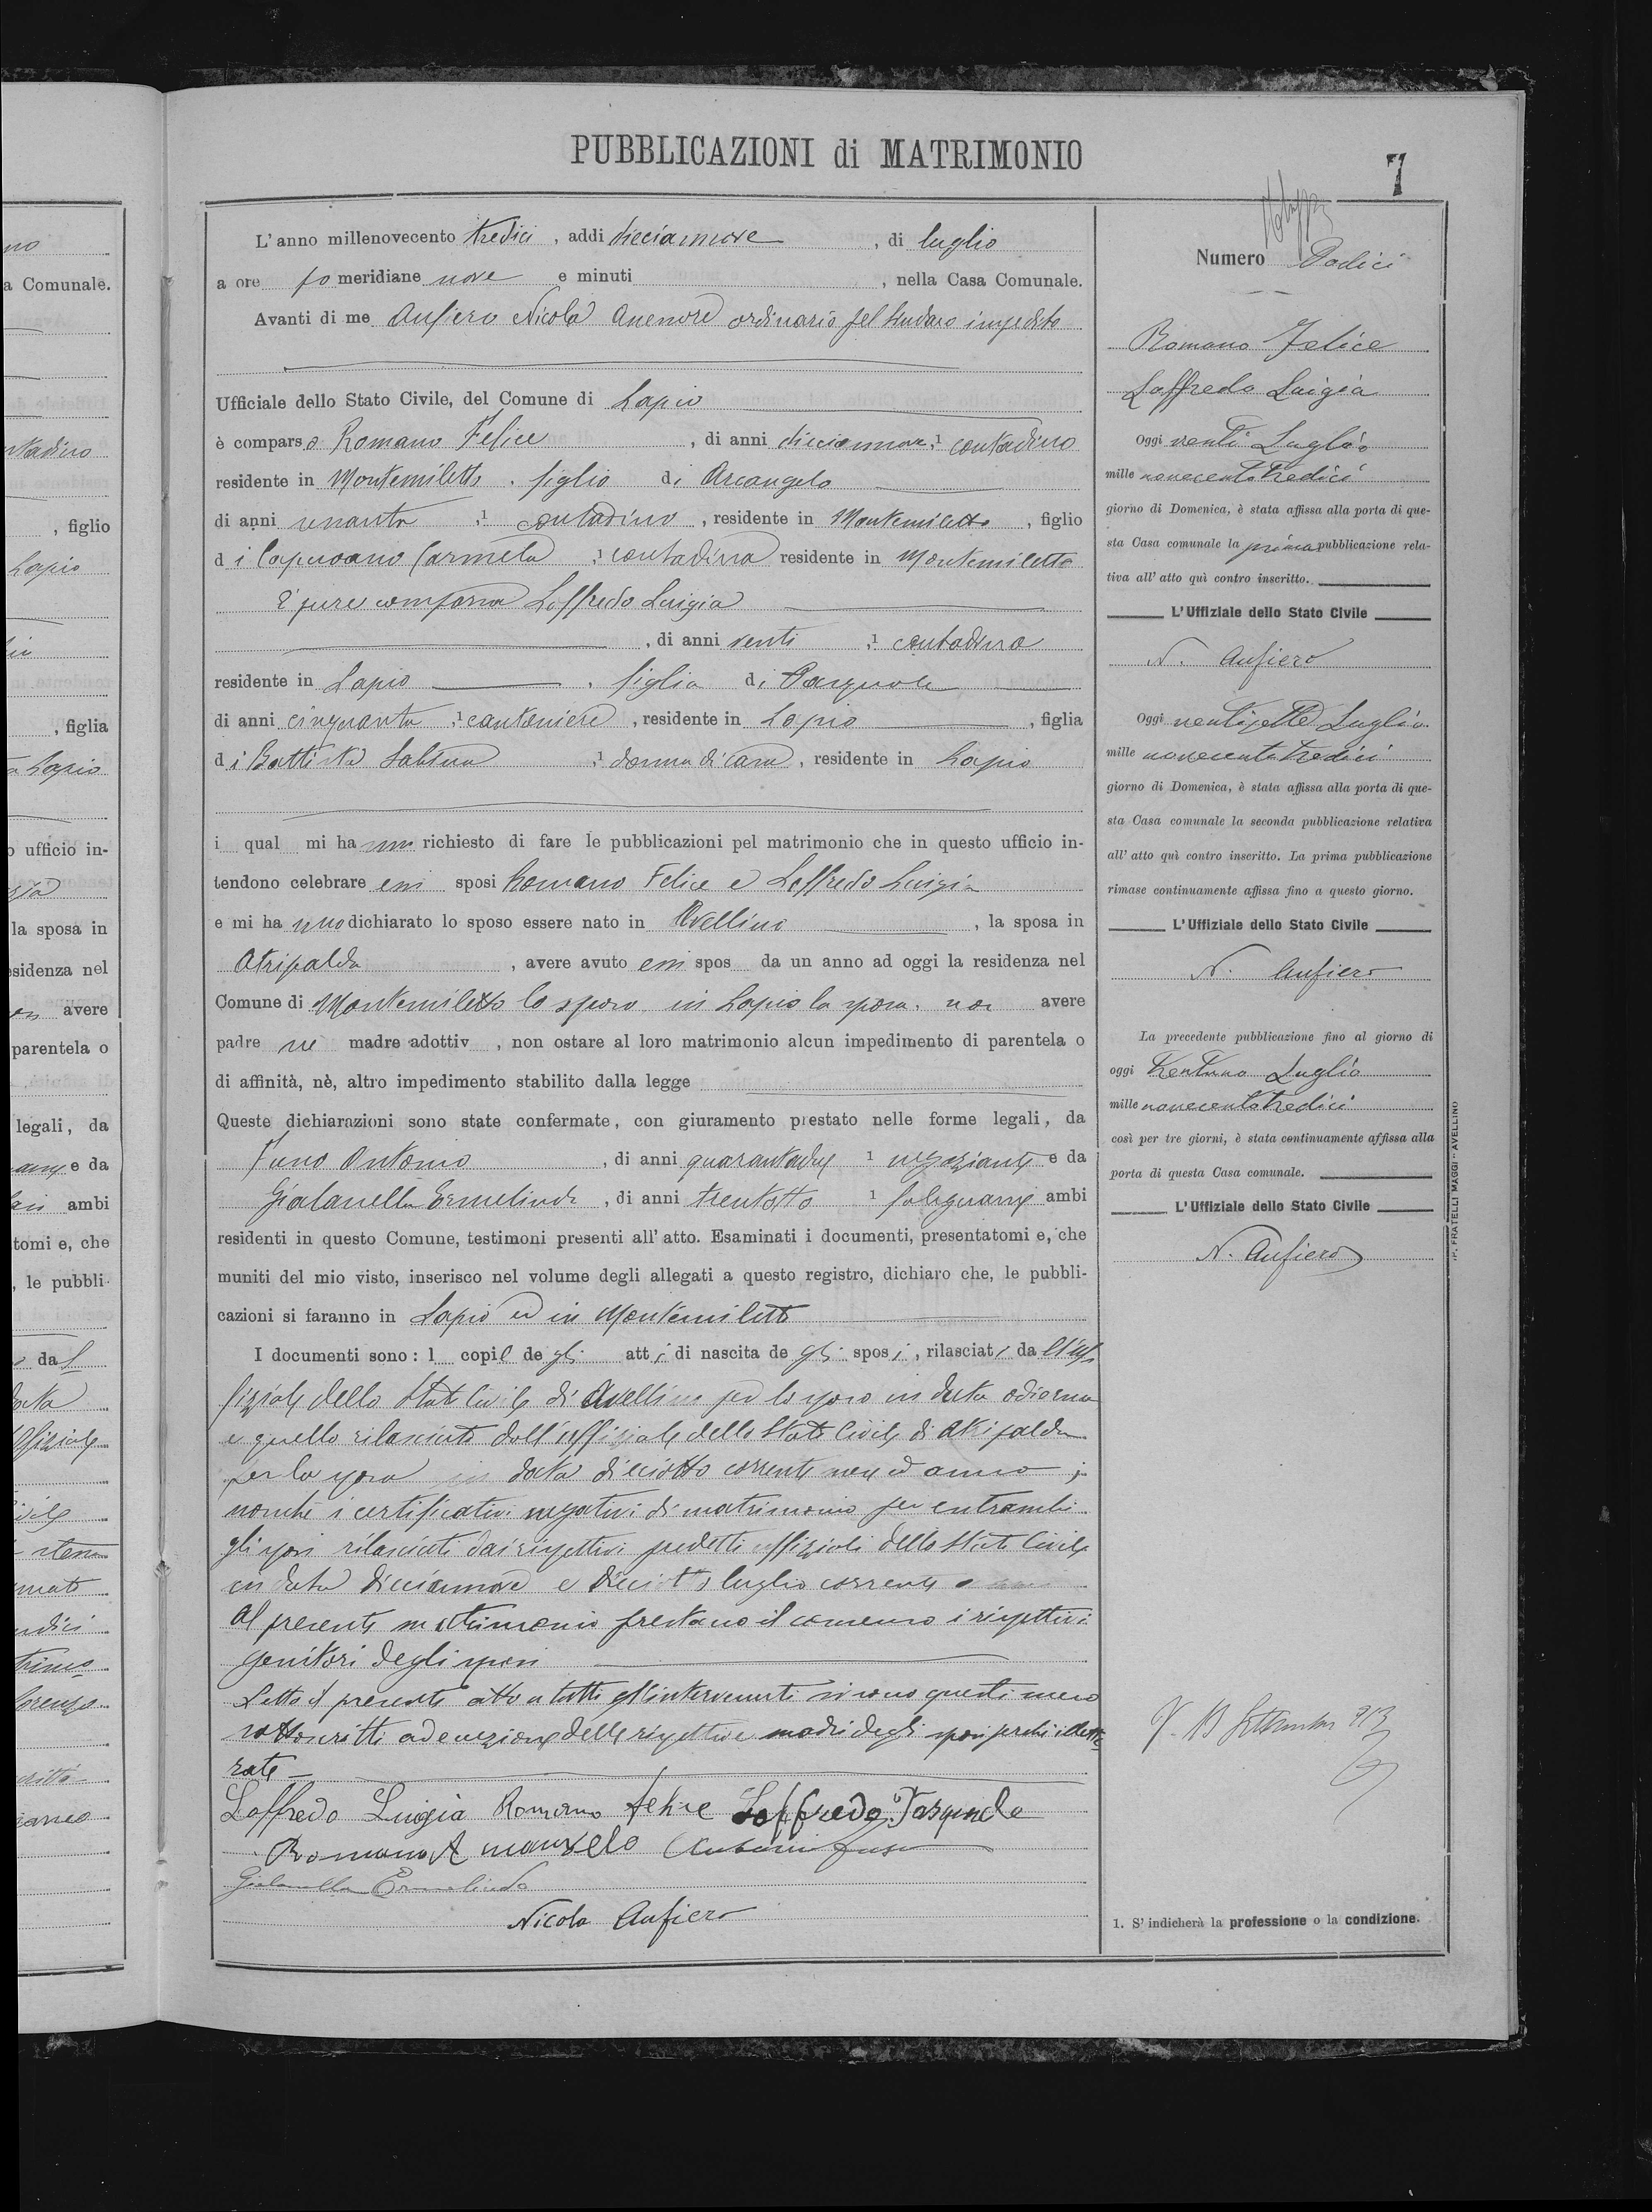 PUBBLICAZIONI di MATRIMONIO
7
L'anno millenovecento tredici, addi diciannove, di luglio
a ore po meridiane nove e minuti , nella Casa Comunale.
Avanti di me Aufiero Nicola Assessore ordinario pel Sindaco impedito
Ufficiale dello Stato Civile, del Comune di Lapio
è comparso Romano Felice, di anni diciannove, 1 contadino
residente in Montemiletto, figlio di Arcangelo
di anni , 1 contadino, residente in Montemiletto, figlio
di Capuoano Carmela, 1 contadina residente in Montemiletto
E' pure comparsa Loffredo Luigia
, di anni venti, 1 contadina
residente in Lapio, figlia di Pasquale
di anni cinquanta, 1 cantoniere, residente in Lapio, figlia
di Battista Sabina, 1 donna di casa, residente in Lapio
i qual mi hanno richiesto di fare le pubblicazioni pel matrimonio che in questo ufficio in-
tendono celebrare essi sposi Romano Felice e Loffredo Luigia
e mi hanno dichiarato lo sposo essere nato in Avellino, la sposa in
Atripalda, avere avuto essi spos da un anno ad oggi la residenza nel
Comune di Montemiletto lo sposo, in Lapio la sposa, non avere
padre nè madre adottiv , non ostare al loro matrimonio alcun impedimento di parentela o
di affinità, nè, altro impedimento stabilito dalla legge
Queste dichiarazioni sono state confermate, con giuramento prestato nelle forme legali, da
Antonio, di anni quarantadue 1 negoziante e da
Gialanella Ermelindo, di anni trentotto 1 falegname ambi
residenti in questo Comune, testimoni presenti all'atto. Esaminati i documenti, presentatomi e, che
muniti del mio visto, inserisco nel volume degli allegati a questo registro, dichiaro che, le pubbli-
cazioni si faranno in Lapio ed in Montemiletto
I documenti sono: 1 copie degli atti di nascita degli sposi, rilasciati da l'Uf
fiziale dello Stato Civile di Avellino per lo sposo in data odierna
e quello rilasciato dall'uffiziale dello Stato Civile di Atripalda
per la sposa in data diciotto corrente mese ed anno;
nonchè i certificativi negativi di matrimonio per entrambi
gli sposi rilasciati dai rispettivi predetti uffiziali dello Stato Civile
in data diciannove e diciotto luglio corrente anno
Al presente matrimonio prestano il consenso i rispettivi
genitori degli sposi
Letto il presente atto a tutti gl'intervenuti si sono questi meco
sottoscritti ad eccezione delle rispettive madri degli sposi perchè illette
rate
Loffredo Luigia Romano Felice Loffredo Pasquale
Romano
Gialanella Ermelindo
Nicola Aufiero
Numero Dodici
Romano Felice
Loffredo Luigia
Oggi venti Luglio
mille novecentotredici
giorno di Domenica, è stata affissa alla porta di que-
sta Casa comunale la prima pubblicazione rela-
tiva all'atto quì contro inscritto.
L'Uffiziale dello Stato Civile
N. Aufiero
Oggi ventisette Luglio
mille novecentotredici
giorno di Domenica, è stata affissa alla porta di que-
sta Casa comunale la seconda pubblicazione relativa
all'atto quì contro inscritto. La prima pubblicazione
rimase continuamente affissa fino a questo giorno.
L'Uffiziale dello Stato Civile
N. Aufiero
La precedente pubblicazione fino al giorno di
oggi trentuno Luglio
mille novecentotredici
così per tre giorni, è stata continuamente affissa alla
porta di questa Casa comunale.
L'Uffiziale dello Stato Civile
N. Aufiero
1. S'indicherà la professione o la condizione.
TIP. FRATELLI MAGGI - AVELLINO
a Comunale.
, figlio
Lapio
, figlia
Lapio
o ufficio in-
la sposa in
esidenza nel
avere
parentela o
legali, da
e da
ambi
tomi e, che
, le pubbli-
da